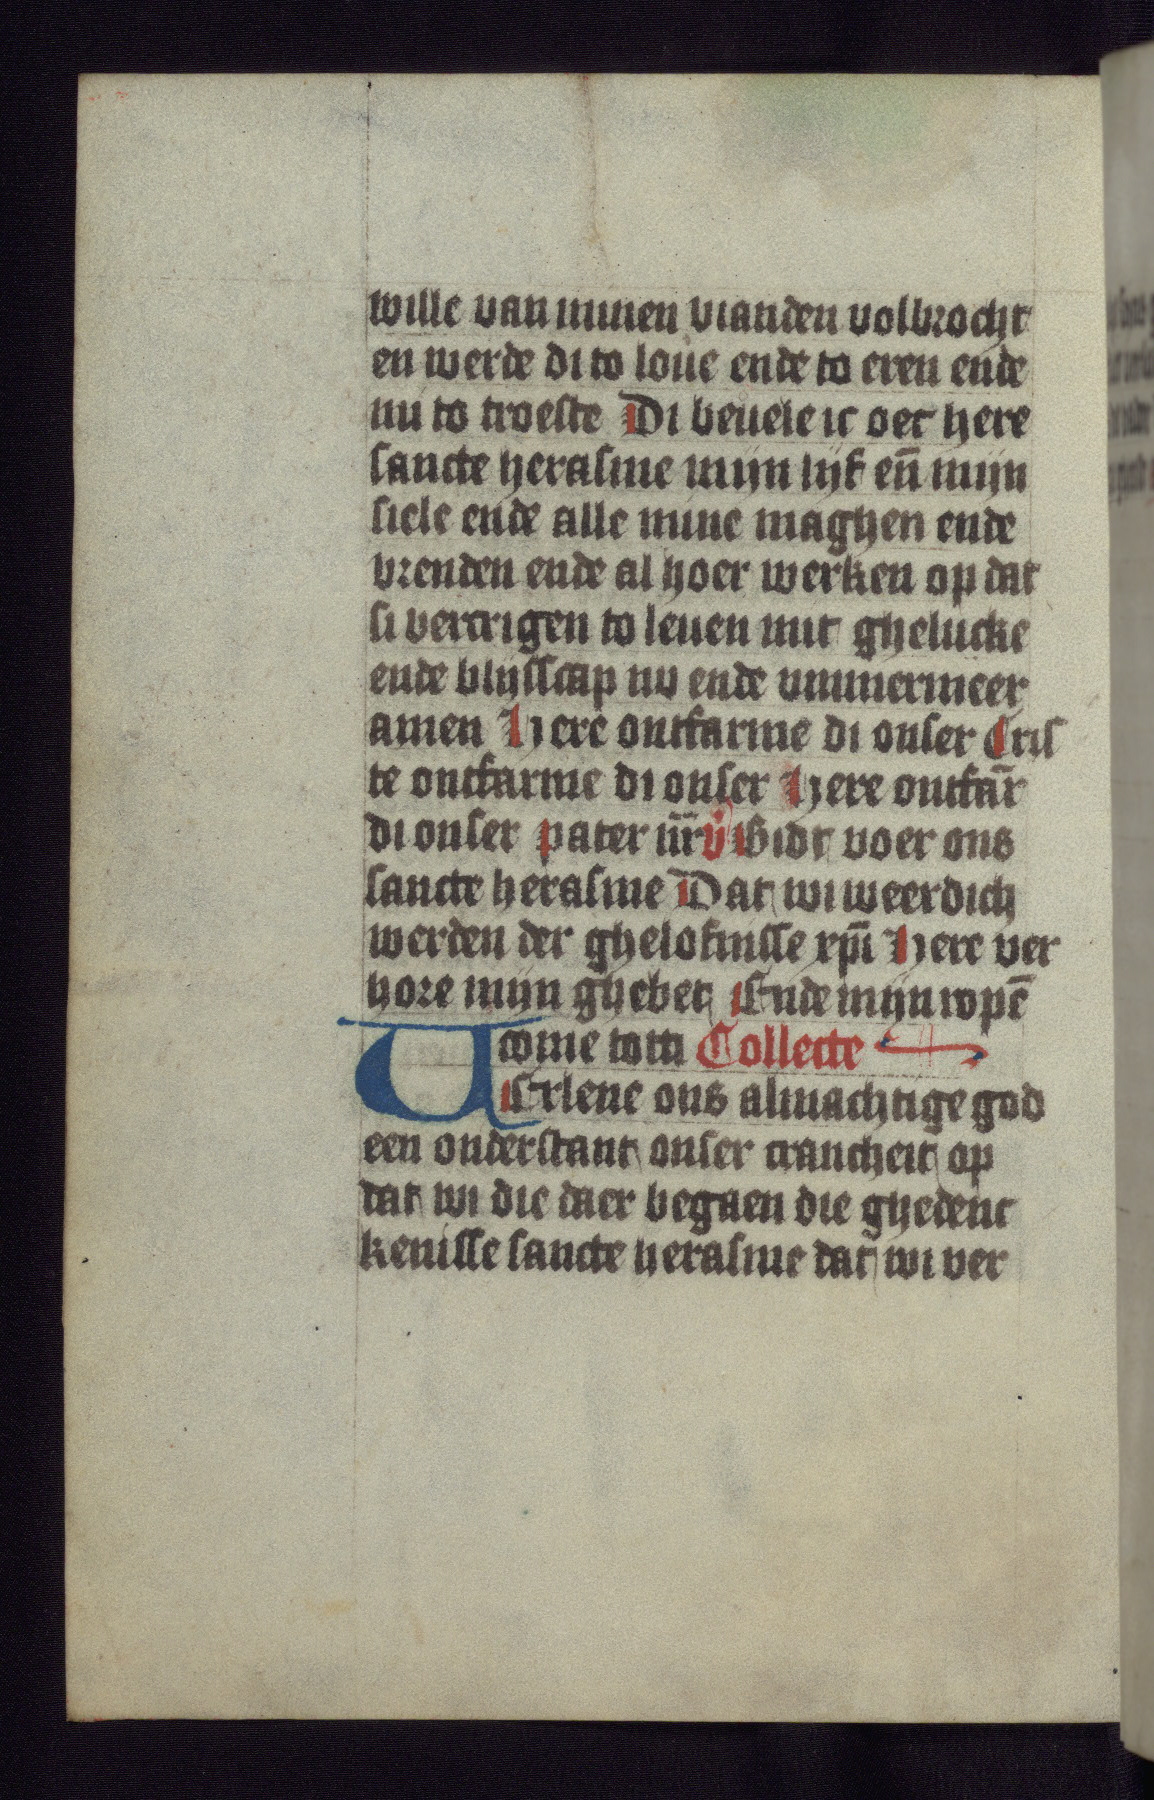 wille van minen vianden volbrocht
en werde di to loue ende to eren ende
mi to troeste Di beuele ic oec here
sancte herasme mijn lijf en̄ mijn
siele ende alle mine maghen ende
vrenden ende al hoer werken op dat
si vercrigen to leuen mit ghelucke
ende blijsscap nv ende vmmermeer
amen Here ontfarme di onser Cris
te ontfarme di onser Here ontfar̄
di onser pater nr̄ v̄ Bidt voer ons
sancte herasme Dat wi weerdich
werden der ghelofnisse xp̄i Here ver
hore mijn ghebet Ende mijn ropē
come totti Collecte
VErlene ons almachtige god
een onderstant onser crancheit op
dat wi die daer begaen die ghedenc
kenisse sancte herasme dat wi ver